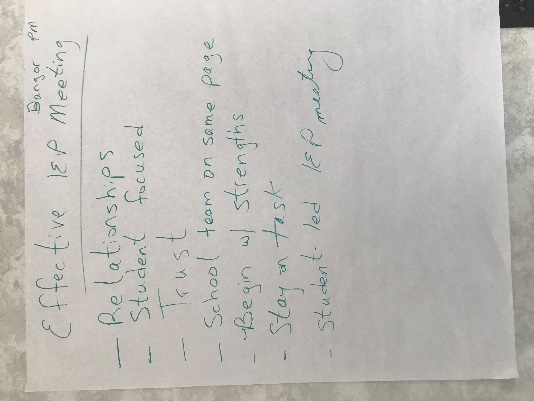 Bangor PM
Effective IEP Meeting
— Relationships
— Student focused
— Trust
— School team on same page
- Begin w/ strengths
- Stay on task
- Student led IEP meeting